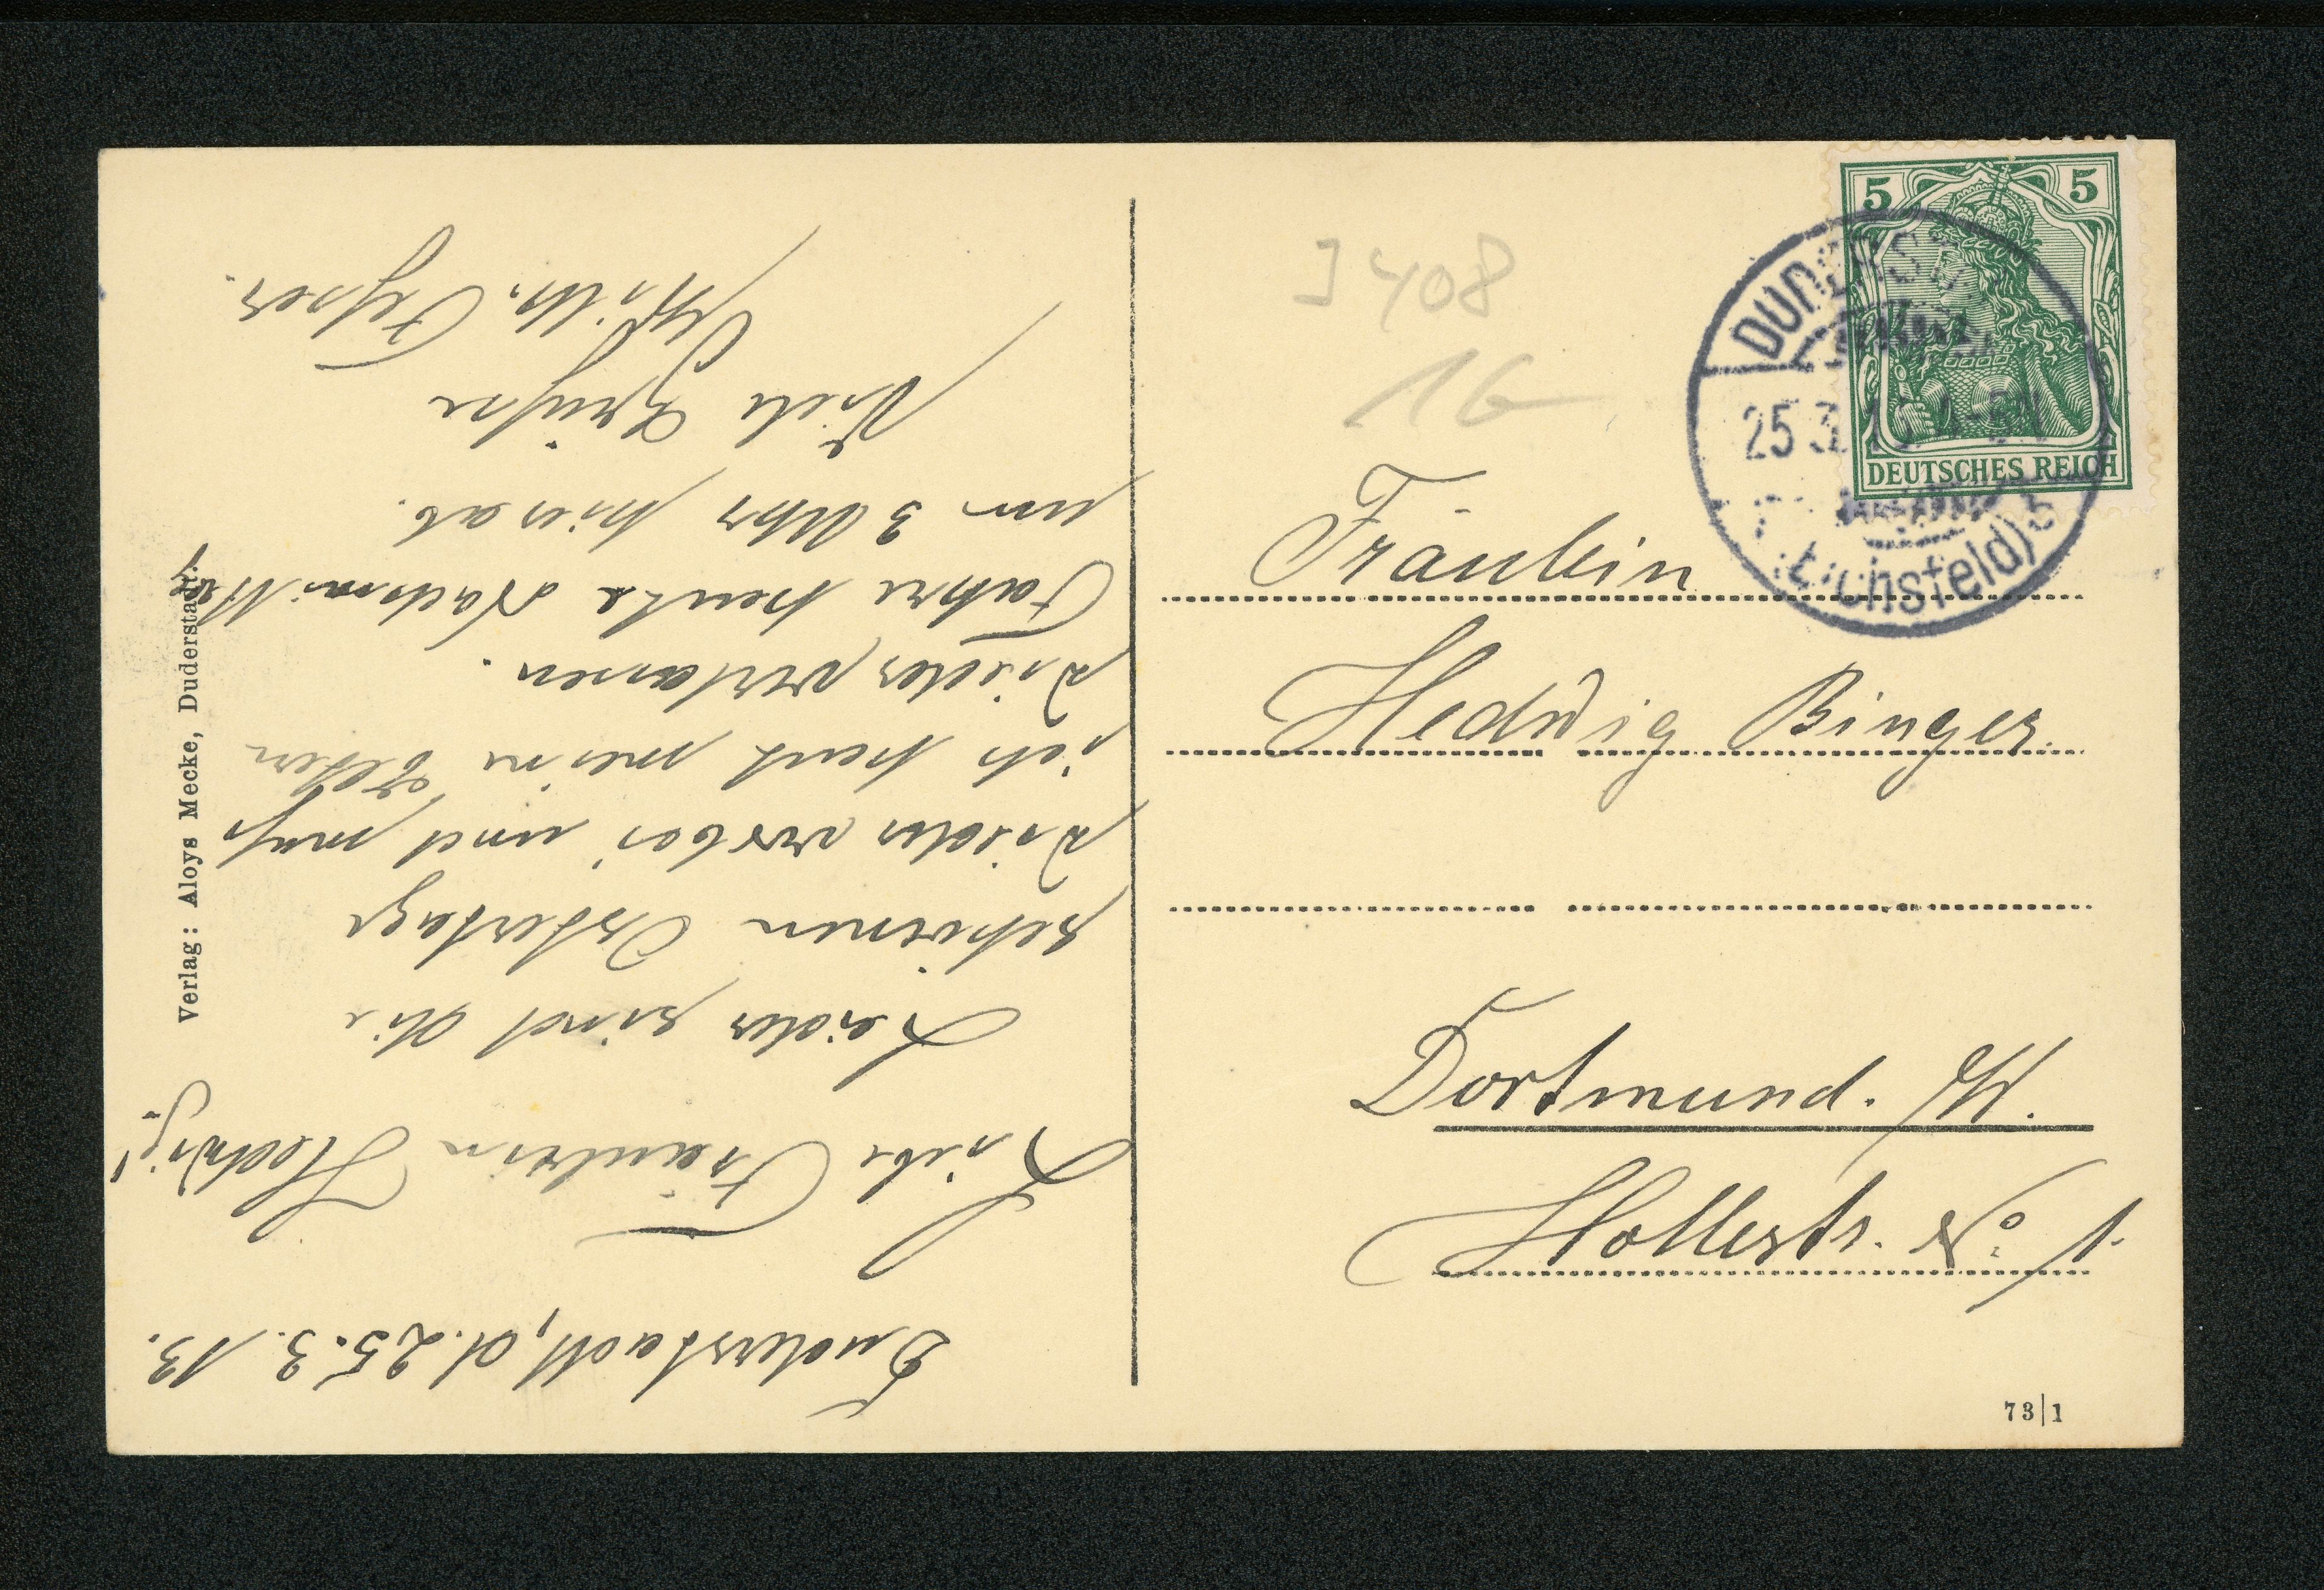 Duderstadt, d. 25. 3. 13.
Liebe Fräulein Hedwig!
Leider sind die
schönen Ostertage
wieder vorbei und muß
ich heut meine Eltern
wieder verlassen.
Fahre heute Nachmittag
um 3 Uhr hier ab.
Viele Grüße
Verlag: Aloys Mecke, Duderstadt.
J 408
16
5 5
DEUTSCHES REICH
DUDERSTADT
25.3.13
(Eichsfeld)
Fräulein
Hedwig Binger.
Dortmund. i/W.
Hollestr. No. 1.
73|1